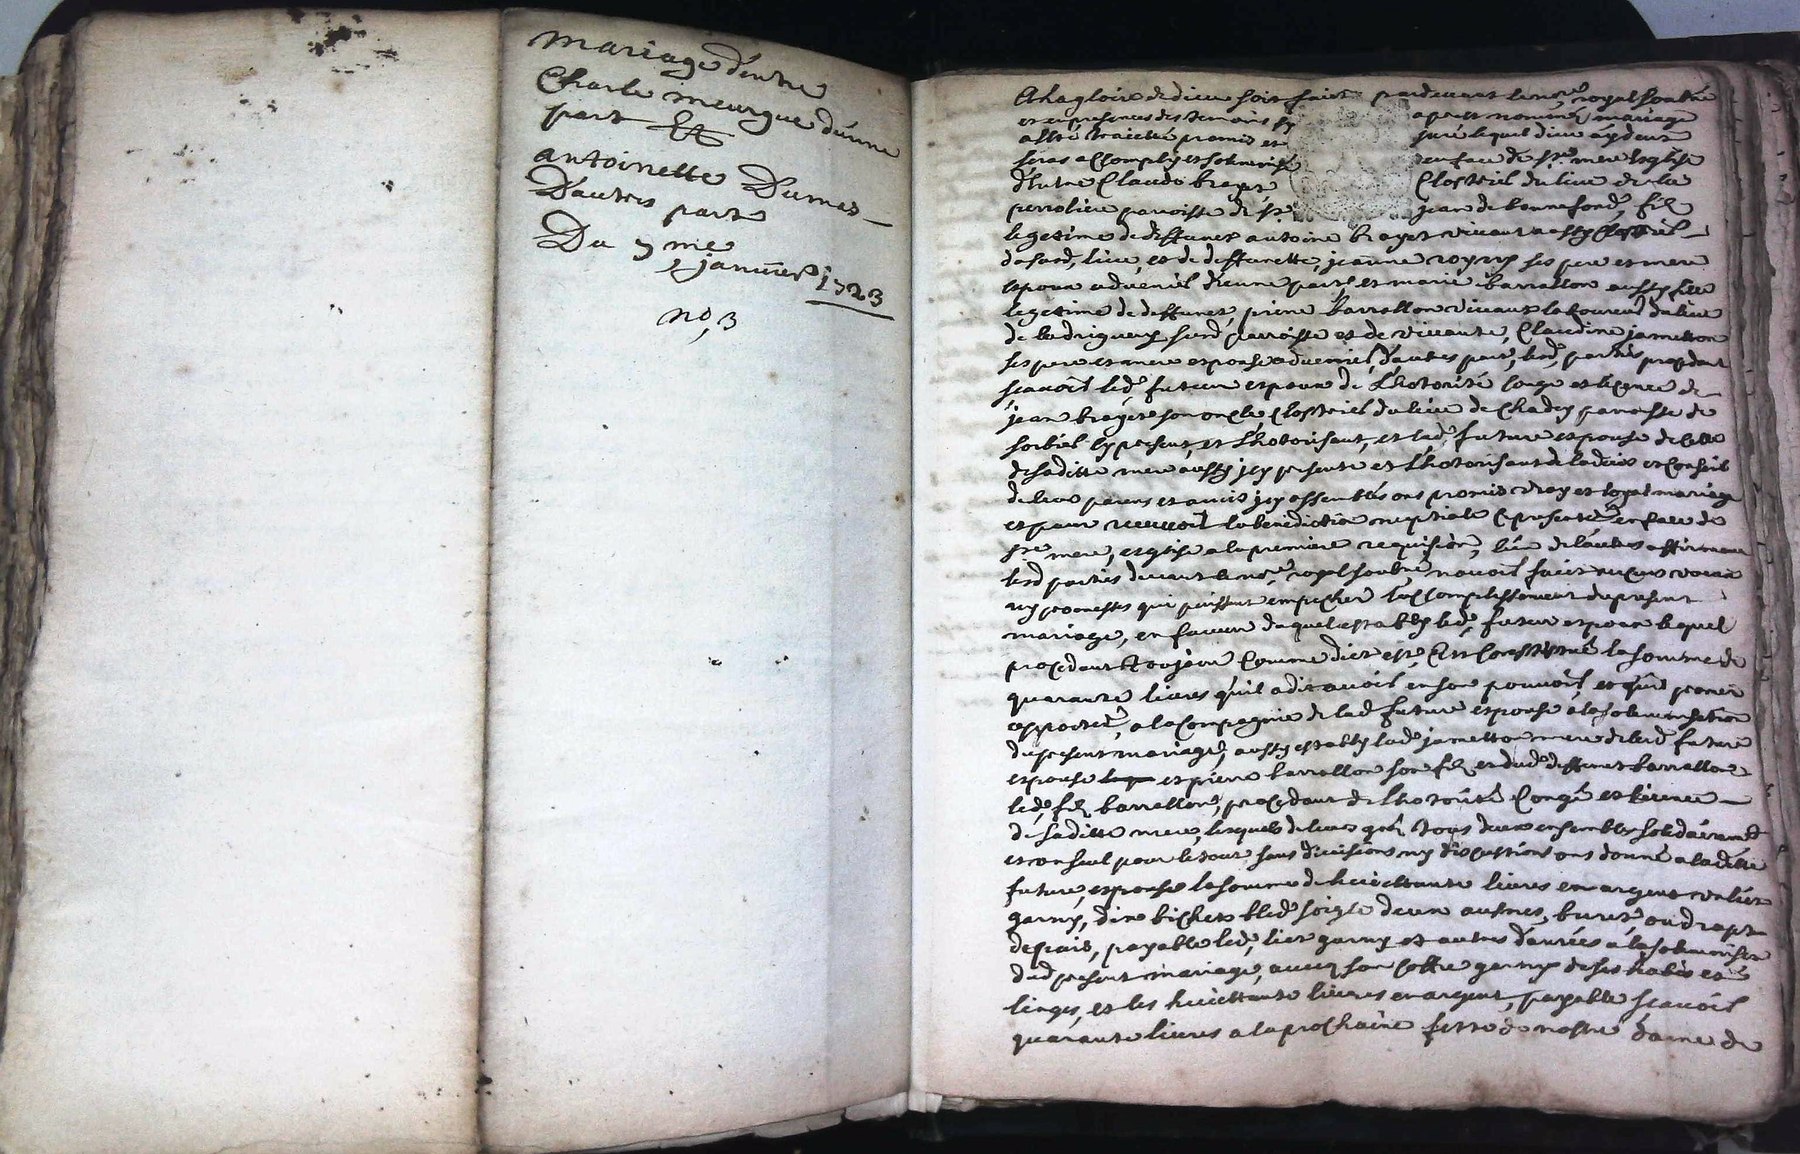 mariage d'entre
Charle meurgue d'une
part Et
antoinette Dumas
D'autres part
Du 9 me
janvier 1723
no, 3
A la gloire de dieu soit faict pardevant le no.re royal soubne
et en presences des temoins apres nommes mariage
a esté traicté promis et juré lequel dieu aydent
seras accomply et solemnise en face de s.te mere esglise
d'entre Claude brayet Closteris du lieu de la
perroliere paroisse de s.t jean de bonnefond, filz
legetime de deffunct antoine brayet vivant aussy
dud lieu, et de deffuncte jeanne royery ses pere et mere
espoux advenir d'eune part, et marie barrallon aussy fille
legetime de deffunct, pierre barrallon vivant laboureur du lieu
de surd paroisse et de vivante, Claudine jametton
ses pere et mere espouse advenir, d'autres part, lesd parties procedant
scavoir led futeur espoux de l'hotorité conge et licence de
jean brayet son oncle, Closteris du lieu de Chadey paroisse de
sorbier cy present, et l'hotorisant, et lad future espouse de celle
de saditte mere aussy jcy presente et l'hotorisant de ladvis et Conseils
de leurs parens et amis jcy assemblés ont promis vray et loyal mariage
et pour recevoir la benediction nuptiale se presenter en face de
s.te mere, esglise a la premiere requisition, l'un de l'autres affirmant
lesd parties devant le no.re royal soubné n'avoir faict aucuns voeux
ny promesses qui puissent empecher l'accomplissement du present
mariage, en faveur duquel estably led, futeur espoux lequel
procedant toujour comme dict est, s'est Constitué la somme de
quarante livres qu'il a dit avoir en son pouvoir, et qu'il promet
apporter, a la Compagnie de lad future espouse a la solemnisation
du present mariage, aussy estably lad jametton mere de lad future
espouse et pierre barrallon son filz et dud deffunct barrallon
led filz barrallon, procedant de l'hotorité Congé et licence
de saditte mere, lesquels de leurs gré, tous deux ensembles solidairement
et un seul pour le tout sans divisions ny discutions ont donné a laditte
future, espouse la somme de huictante livres en argent un lict
garny, dix bichets bled soigle deux aulnes, buret, ou drapt
depais, payable led, lict garny et autres danrées a la solemnison
dud present mariage, avecq son coffre garny de ses habis et
linges, et les huictante livres en argent, payable scavoir
quarante livres a la prochaine feste de nostre dame de